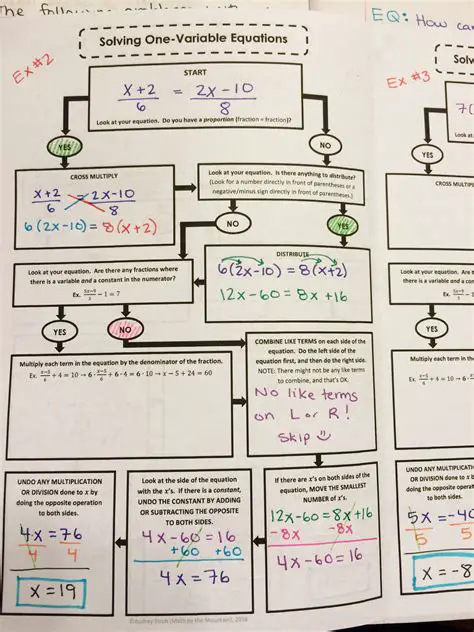 The following
EQ: How can
Solving One-Variable Equations
Ex #2
START
x+2/6 = 2x-10/8
Look at your equation. Do you have a proportion (fraction = fraction)?
YES
NO
CROSS MULTIPLY
x+2/6 = 2x-10/8
6(2x-10) = 8(x+2)
Look at your equation. Is there anything to distribute?
(Look for a number directly in front of parentheses or a
negative/minus sign directly in front of parentheses.)
NO
YES
DISTRIBUTE
6(2x-10) = 8(x+2)
12x-60 = 8x+16
Look at your equation. Are there any fractions where
there is a variable and a constant in the numerator?
Ex. 5x-9/3 - 1 = 7
YES
NO
Multiply each term in the equation by the denominator of the fraction.
Ex. x-5/6 + 4 = 10 → 6 · x-5/6 + 6 · 4 = 6 · 10 → x - 5 + 24 = 60
COMBINE LIKE TERMS on each side of the
equation. Do the left side of the
equation first, and then do the right side.
NOTE: There might not be any like terms
to combine, and that's OK.
No like terms
on L or R!
Skip
If there are x's on both sides of the
equation, MOVE THE SMALLEST
NUMBER of x's.
12x-60 = 8x+16
-8x -8x
4x-60 = 16
Look at the side of the equation
with the x's. If there is a constant,
UNDO THE CONSTANT BY ADDING
OR SUBTRACTING THE OPPOSITE
TO BOTH SIDES.
4x-60 = 16
+60 +60
4x = 76
UNDO ANY MULTIPLICATION
OR DIVISION done to x by
doing the opposite operation
to both sides.
4x = 76
4 4
x = 19
Ex #3
Solv
7(
Look at
YES
CROSS MULTIP
Look at your equation. Are t
there is a variable and a con
Ex.
YES
Multiply each term in th
UNDO ANY MULTIPLICATI
OR DIVISION done to x b
doing the opposite operat
to both sides.
5x = -40
5 5
x = -8